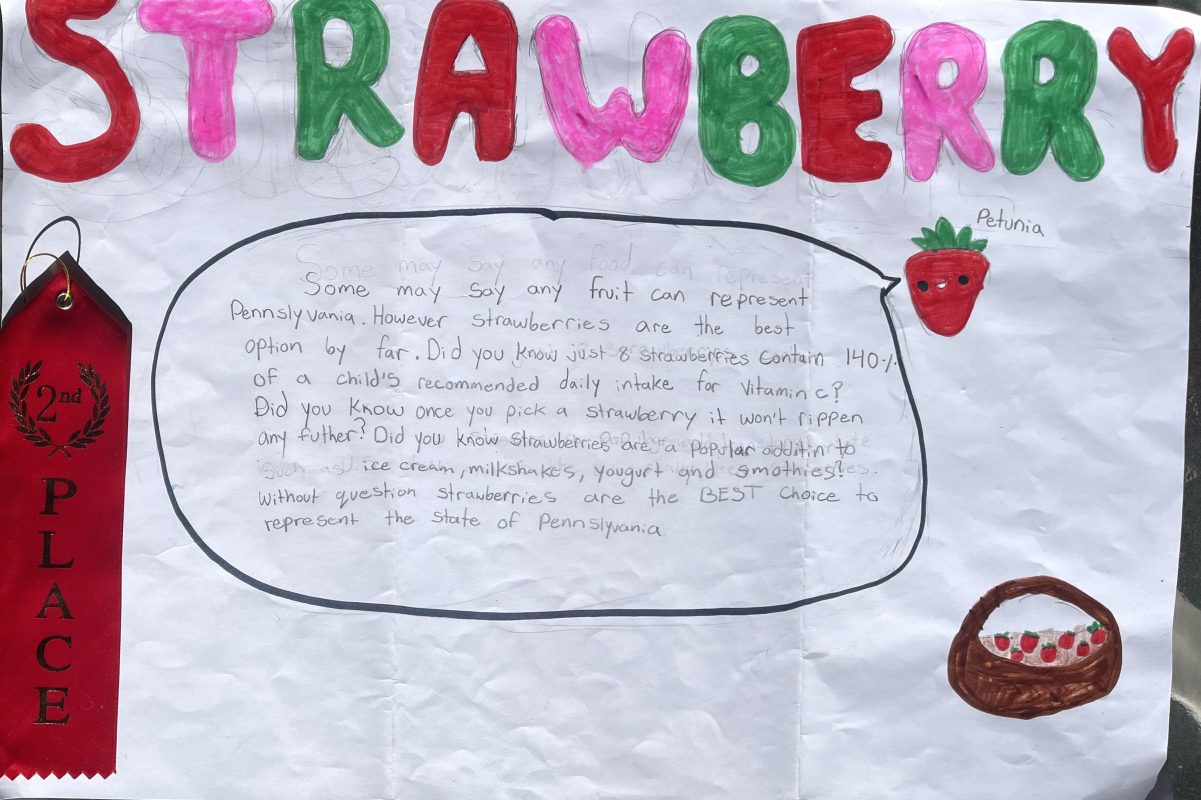 STRAWBERRY
Petunia
Some may say any food can represent
Some may say any fruit can represent
Pennslyvania. However strawberries are the best
option by far. Did you know just 8 strawberries contain 140%
of a child's recommended daily intake for vitamin c?
Did you know once you pick a strawberry it won't rippen
any futher? Did you know strawberries are a popular additin to
ice cream, milkshakes, yougurt and smothies?
Without question strawberries are the BEST choice to
represent the state of Pennslyvania
2nd
PLACE